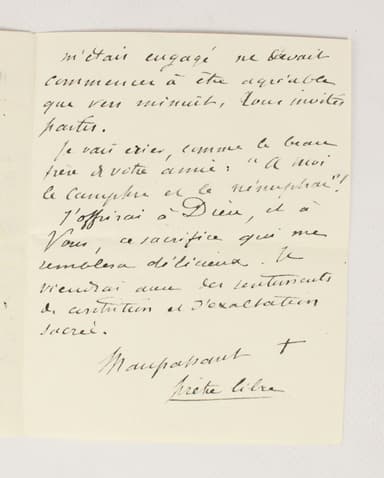 m'étais engagé ne devait
commencer à être agréable
que vers minuit, tous invités
partis.
Je vais crier, comme le beau
frère de votre amie : "A moi
le camphre et le nénuphar"!
J'offrirai à Dieu, et à
Vous, ce sacrifice qui me
semblera délicieux. Je
viendrai avec des sentiments
de contrition et d'exaltation
sacrée.
Maupassant +
prêtre libre